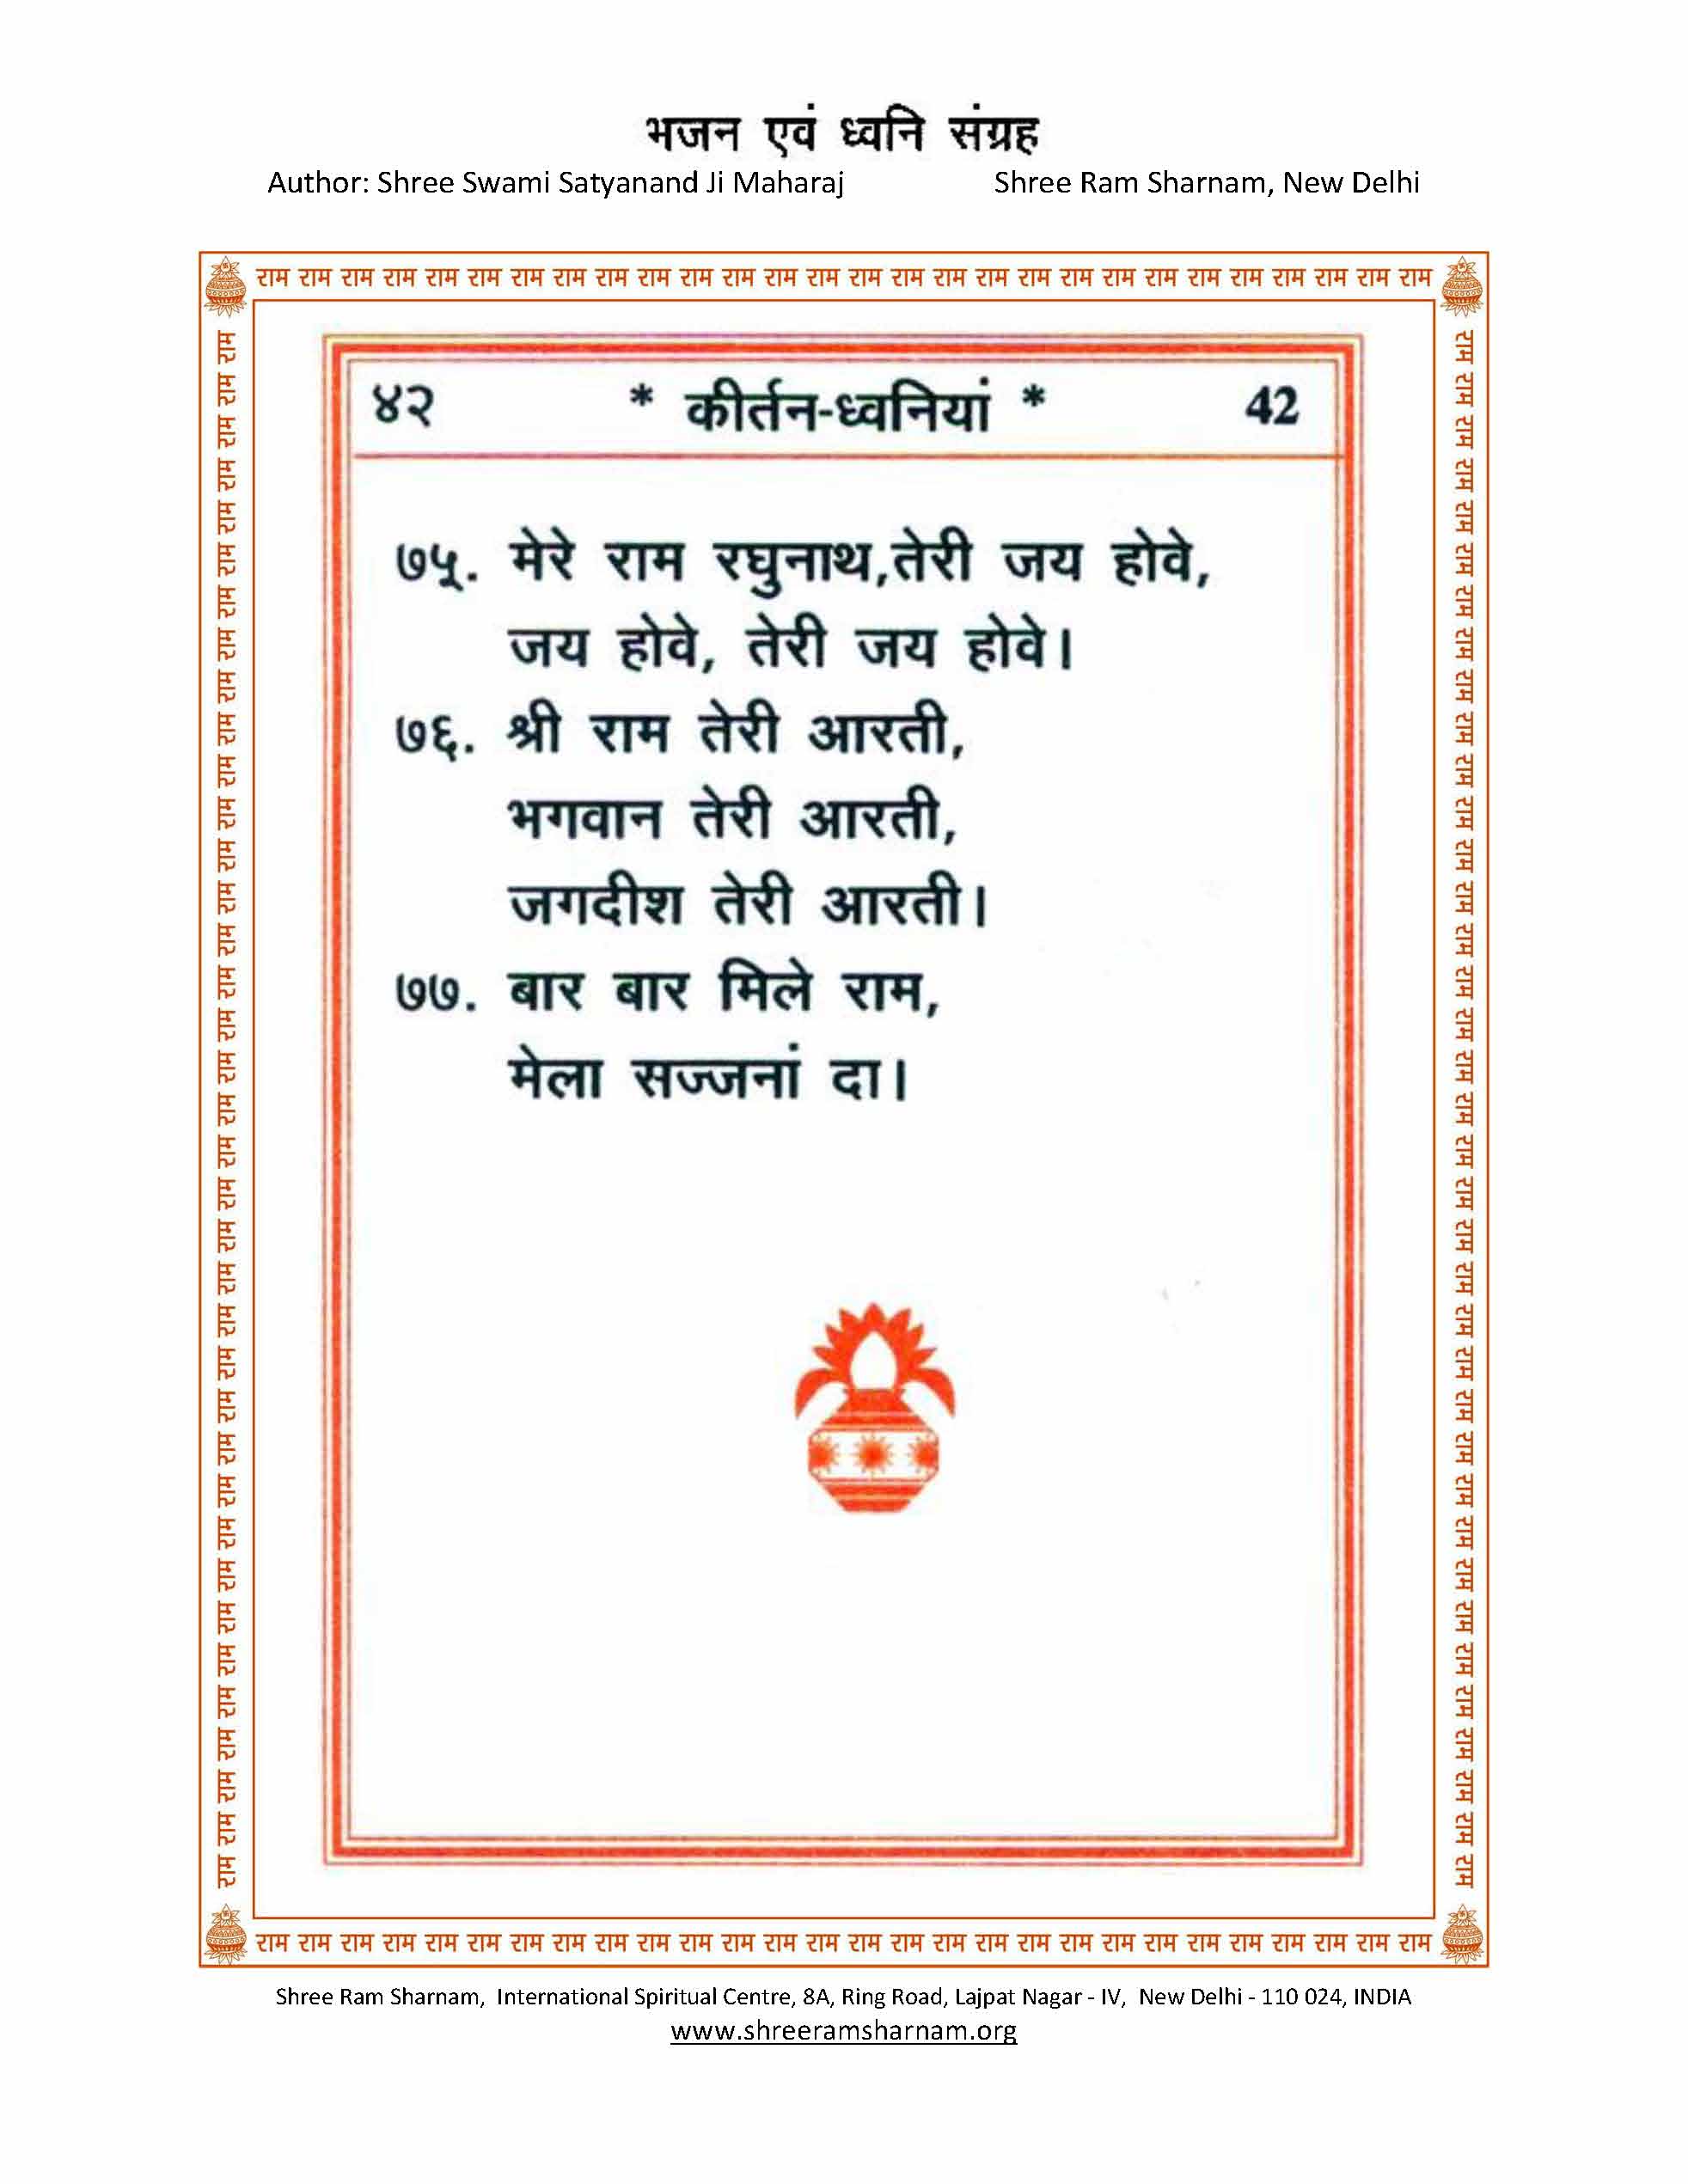 भजन एवं ध्वनि संग्रह
Author: Shree Swami Satyanand Ji Maharaj Shree Ram Sharnam, New Delhi
राम राम राम राम राम राम राम राम राम राम राम राम राम राम राम राम राम राम राम राम राम राम राम राम राम राम राम राम
४२ * कीर्तन-ध्वनियां * 42
७५. मेरे राम रघुनाथ,तेरी जय होवे,
जय होवे, तेरी जय होवे।
७६. श्री राम तेरी आरती,
भगवान तेरी आरती,
जगदीश तेरी आरती।
७७. बार बार मिले राम,
मेला सज्जनां दा।
राम राम राम राम राम राम राम राम राम राम राम राम राम राम राम राम राम राम राम राम राम राम राम राम राम राम राम राम राम राम राम राम राम राम राम राम राम
राम राम राम राम राम राम राम राम राम राम राम राम राम राम राम राम राम राम राम राम राम राम राम राम राम राम राम राम राम राम राम राम राम राम राम राम राम
राम राम राम राम राम राम राम राम राम राम राम राम राम राम राम राम राम राम राम राम राम राम राम राम राम राम राम राम
Shree Ram Sharnam, International Spiritual Centre, 8A, Ring Road, Lajpat Nagar - IV, New Delhi - 110 024, INDIA
www.shreeramsharnam.org